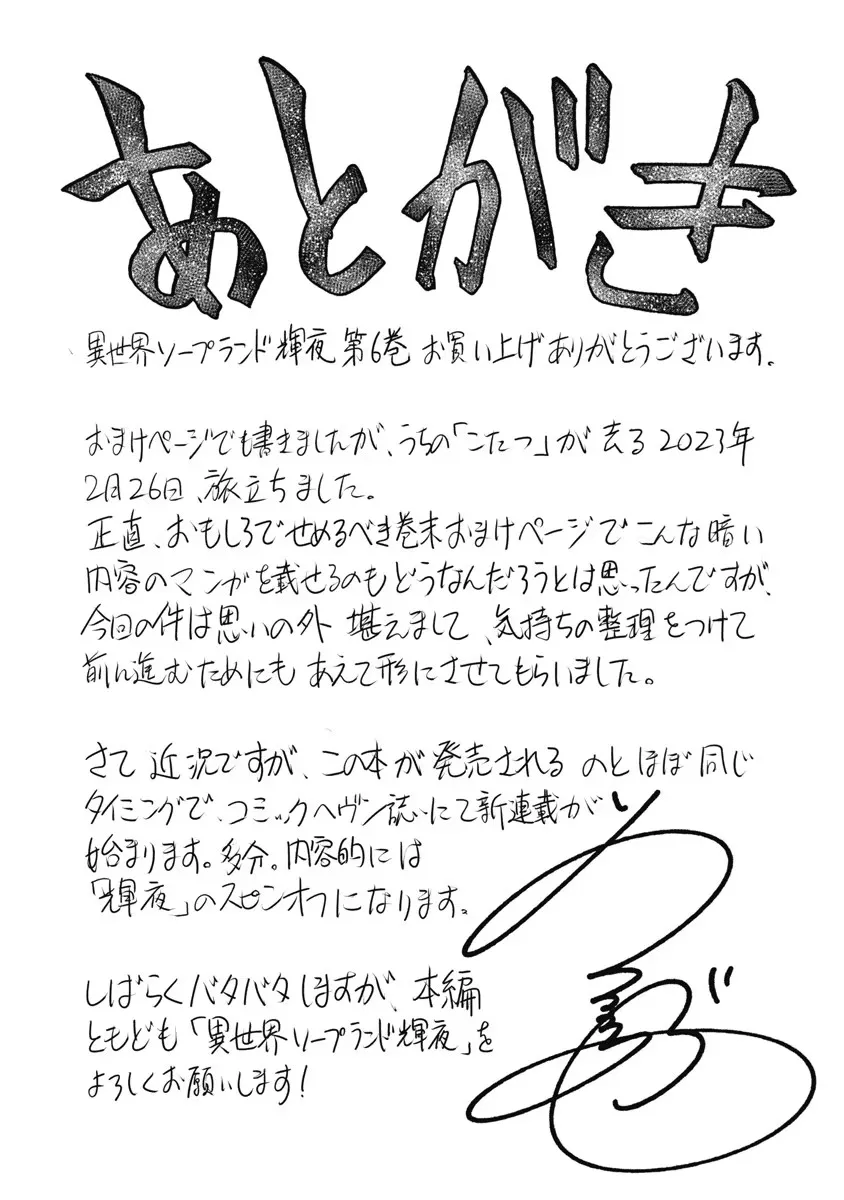 あとがき
異世界ソープランド輝夜 第6巻 お買い上げありがとうございます。
おまけページでも書きましたが、うちの「こたつ」が去る2023年
2月26日、旅立ちました。
正直、おもしろでせめるべき巻末おまけページでこんな暗い
内容のマンガを載せるのもどうなんだろうとは思ったんですが、
今回の件は思いの外 堪えまして、気持ちの整理をつけて
前に進むためにも あえて形にさせてもらいました。
さて 近況ですが、この本が発売されるのとほぼ同じ
タイミングで、コミックヘヴン誌にて新連載が
始まります。多分。内容的には
「輝夜」のスピンオフになります。
しばらくバタバタしますが、本編
ともども「異世界ソープランド輝夜」を
よろしくお願いします!